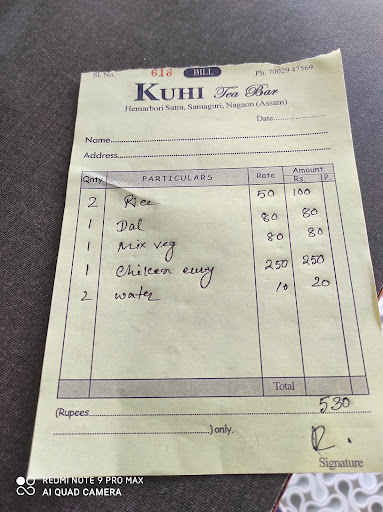 Sl. No. 613 BILL Ph. 70029 47569
KUHI Tea Bar
Hemarbori Satra, Samaguri, Nagaon (Assam)
Date
Name
Address
Qnty. PARTICULARS Rate Amount
Rs. P.
2 Rice 50 100
1 Dal 80 80
1 Mix veg 80 80
1 Chicken curry 250 250
2 water 10 20
Total
530
(Rupees
) only.
R.
Signature
REDMI NOTE 9 PRO MAX
AI QUAD CAMERA